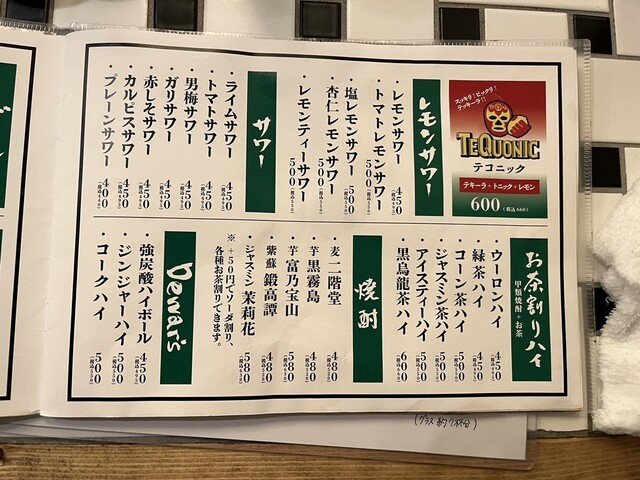 スッキリ！ビックリ！
テッキーラ！！
TEQUONIC
テコニック
テキーラ＋トニック＋レモン
600（税込660）
レモンサワー
・レモンサワー 450（税込495）
・トマトレモンサワー 500（税込550）
・塩レモンサワー 500（税込550）
・杏仁レモンサワー 500（税込550）
・レモンティーサワー 500（税込550）
サワー
・ライムサワー 450（税込495）
・トマトサワー 450（税込495）
・男梅サワー 450（税込495）
・ガリサワー 450（税込495）
・赤しそサワー 450（税込495）
・カルピスサワー 450（税込495）
・プレーンサワー 400（税込440）
お茶割りハイ
甲類焼酎＋お茶
・ウーロンハイ 450（税込495）
・緑茶ハイ 450（税込495）
・コーン茶ハイ 500（税込550）
・ジャスミン茶ハイ 500（税込550）
・アイスティーハイ 500（税込550）
・黒烏龍茶ハイ 600（税込660）
焼酎
麦 二階堂 480（税込528）
芋 黒霧島 480（税込528）
芋 富乃宝山 580（税込638）
紫蘇 鍛高譚 480（税込528）
ジャスミン 茉莉花 580（税込638）
※＋50円でソーダ割り、
各種お茶割りできます。
Dewar's
・強炭酸ハイボール 450（税込495）
・ジンジャーハイ 500（税込550）
・コークハイ 500（税込550）
（グラス 約7杯分）